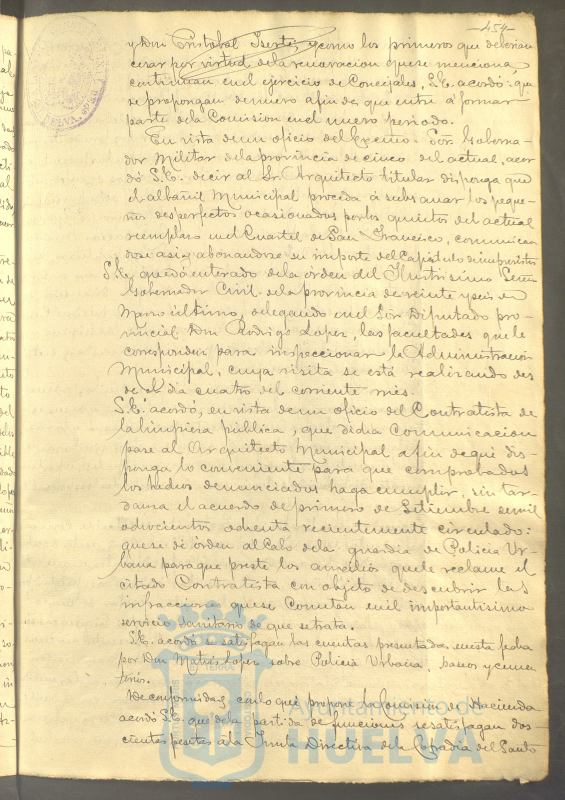 -454-
y Don Cristobal Iserte, y como los primeros que deberian
cesar por virtud de la renovacion que se menciona,
continuan en el ejercicio de Concejales, S.E. acordó: que
se propongan de nuevo afin de que entre á formar
parte de la Comision en el nuevo periodo.
En vista de un oficio del Excmo. Sor. Goberna-
dor Militar de la provincia de cinco del actual, acor-
dó S.E. decir al Sr. Arquitecto titular disponga que
el albañil Municipal proceda á subsanar los peque-
ños desperfectos ocasionados por los quintos del actual
reemplazo en el Cuartel de San Francisco, comunican
dose asi y abonandose su importe del Capítulo de imprevistos
S.E. quedó enterado de la órden del Ilustrisimo Señor
Gobernador Civil de la provincia de veinte y seis de
Marzo último, delegando en el Sor Diputado pro-
vincial Don Rodrigo Lopez, las facultades que le
corresponden para inspeccionar la Administracion
Municipal, cuya visita se está realizando des
de el dia cuatro del corriente mes.
S.E. acordó, en vista de un oficio del Contratista de
la limpieza pública, que dicha Comunicacion
pase al Arquitecto Municipal afin de que dis-
ponga lo conveniente para que comprobados
los hechos denunciados haga cumplir, sin tar-
danza el acuerdo de primero de Setiembre de mil
ochocientos ochenta recientemente circulado:
que se dé órden al Cabo de la guardia de Policia Ur-
bana para que preste los auxilios que le reclame el
citado Contratista con objeto de descubrir las
infracciones que se cometan en el importantísimo
servicio sanitario de que se trata.
S.E. acordó se satisfagan las cuentas presentadas en esta fecha
por Don Matías Lopez sobre Policia Urbana paseos y cemen
terios.
De conformidad con lo que propone la Comision de Hacienda
acordó S.E. que de la partida de funciones se satisfagan dos-
cientas pesetas á la Junta Directiva de la Cofradia del Santo
Ayuntamiento de
HUELVA